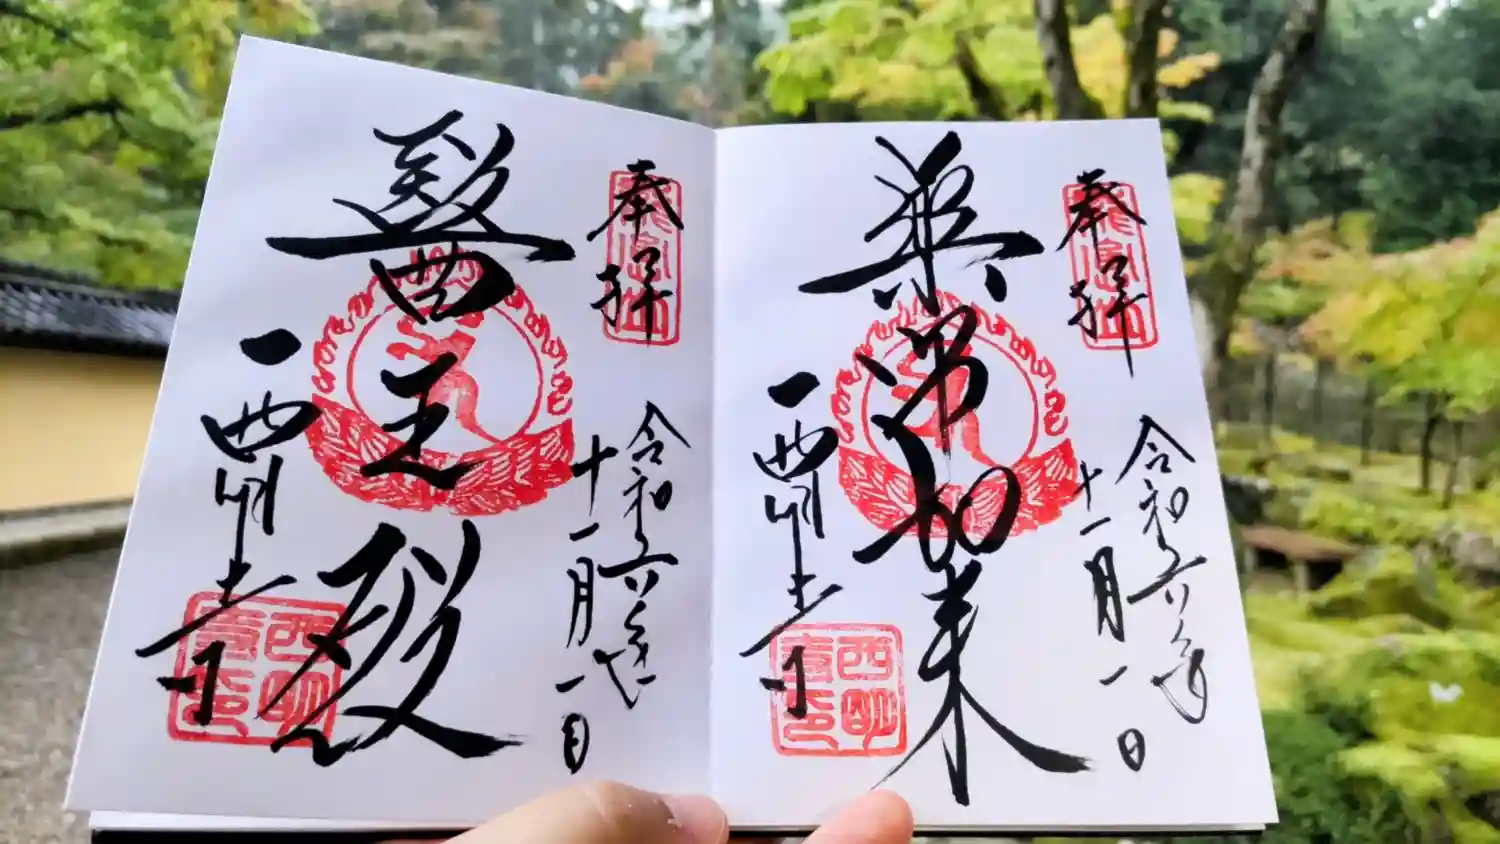 奉拝
龍應山
令和六年
十一月一日
薬師如来
西明寺
奉拝
龍應山
令和六年
十一月一日
醫王殿
西明寺